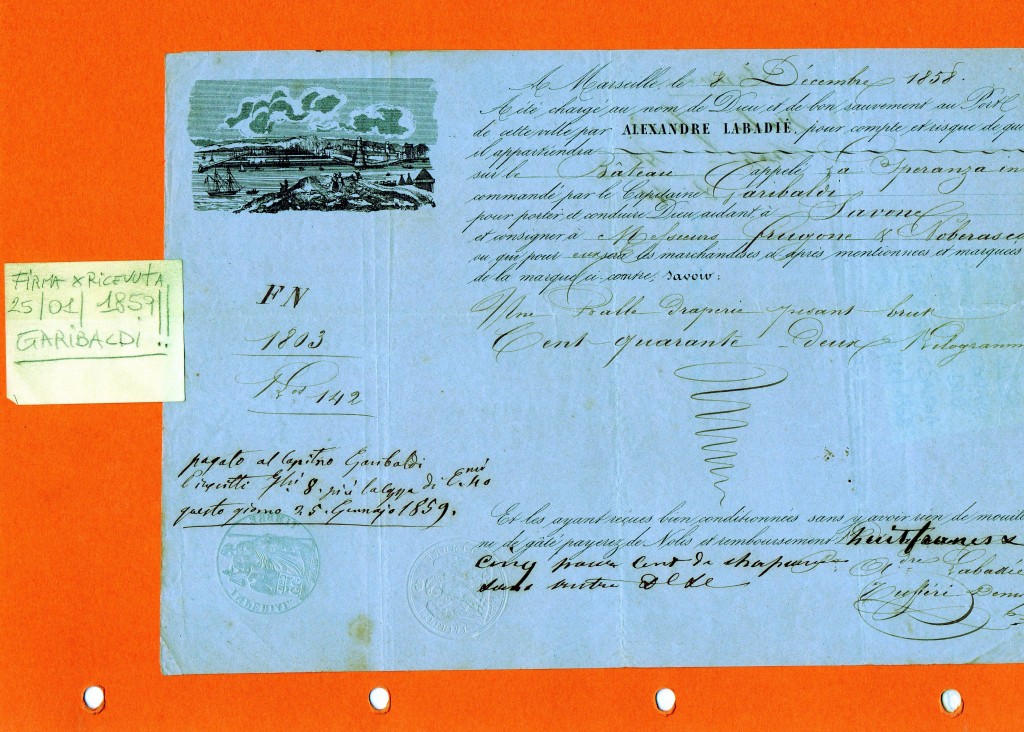 FIRMA X RICEVUTA
25/01/1859!!
GARIBALDI!!
A Marseille, le 8 Décembre 1858.
A été chargé au nom de Dieu et de bon sauvement au Port
de cette ville par ALEXANDRE LABADIÉ, pour compte et risque de qui
il appartiendra
sur le Bâteau appelé La Speranza
commandé par le Capitaine Garibaldi
pour porter et conduire Dieu aidant à Savone
et consigner à Messieurs frugone &
ou qui pour eux sera les marchandises ci après mentionnées et marquées
de la marque ci contre, savoir:
FN
1803
142
Une Balle draperie pesant brut
Cent quarante Deux Kilogramm
pagato al Capitno Garibaldi
8. più la Cappa di
questo giorno 25. Gennajo 1859.
Et les ayant reçues bien conditionnées sans y avoir rien de mouillé
ne de gâté payerez de Nolis et remboursement huit francs &
cinq pour cent de chapeau
sans autre
Labadié